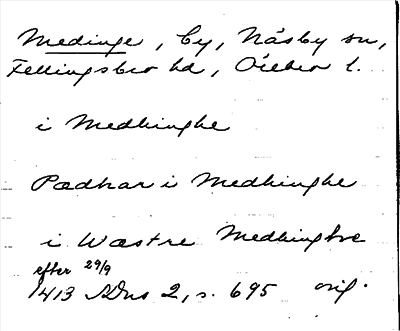 Medinge, by, Näsby sn,
Fellingsbro hd, Örebro l.
i Medhinghe
Pædhar i Medhinghe
i Wæstre Medhinghe
efter 29/9
1413 SDns 2, s. 695 orig.